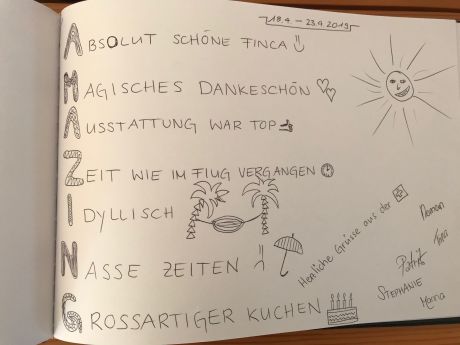 18.4 – 23.4.2019
ABSOLUT SCHÖNE FINCA
MAGISCHES DANKESCHÖN
AUSSTATTUNG WAR TOP
ZEIT WIE IM FLUG VERGANGEN
IDYLLISCH
NASSE ZEITEN
GROSSARTIGER KUCHEN
Herzliche Grüsse aus der
Patrik
STEPHANIE